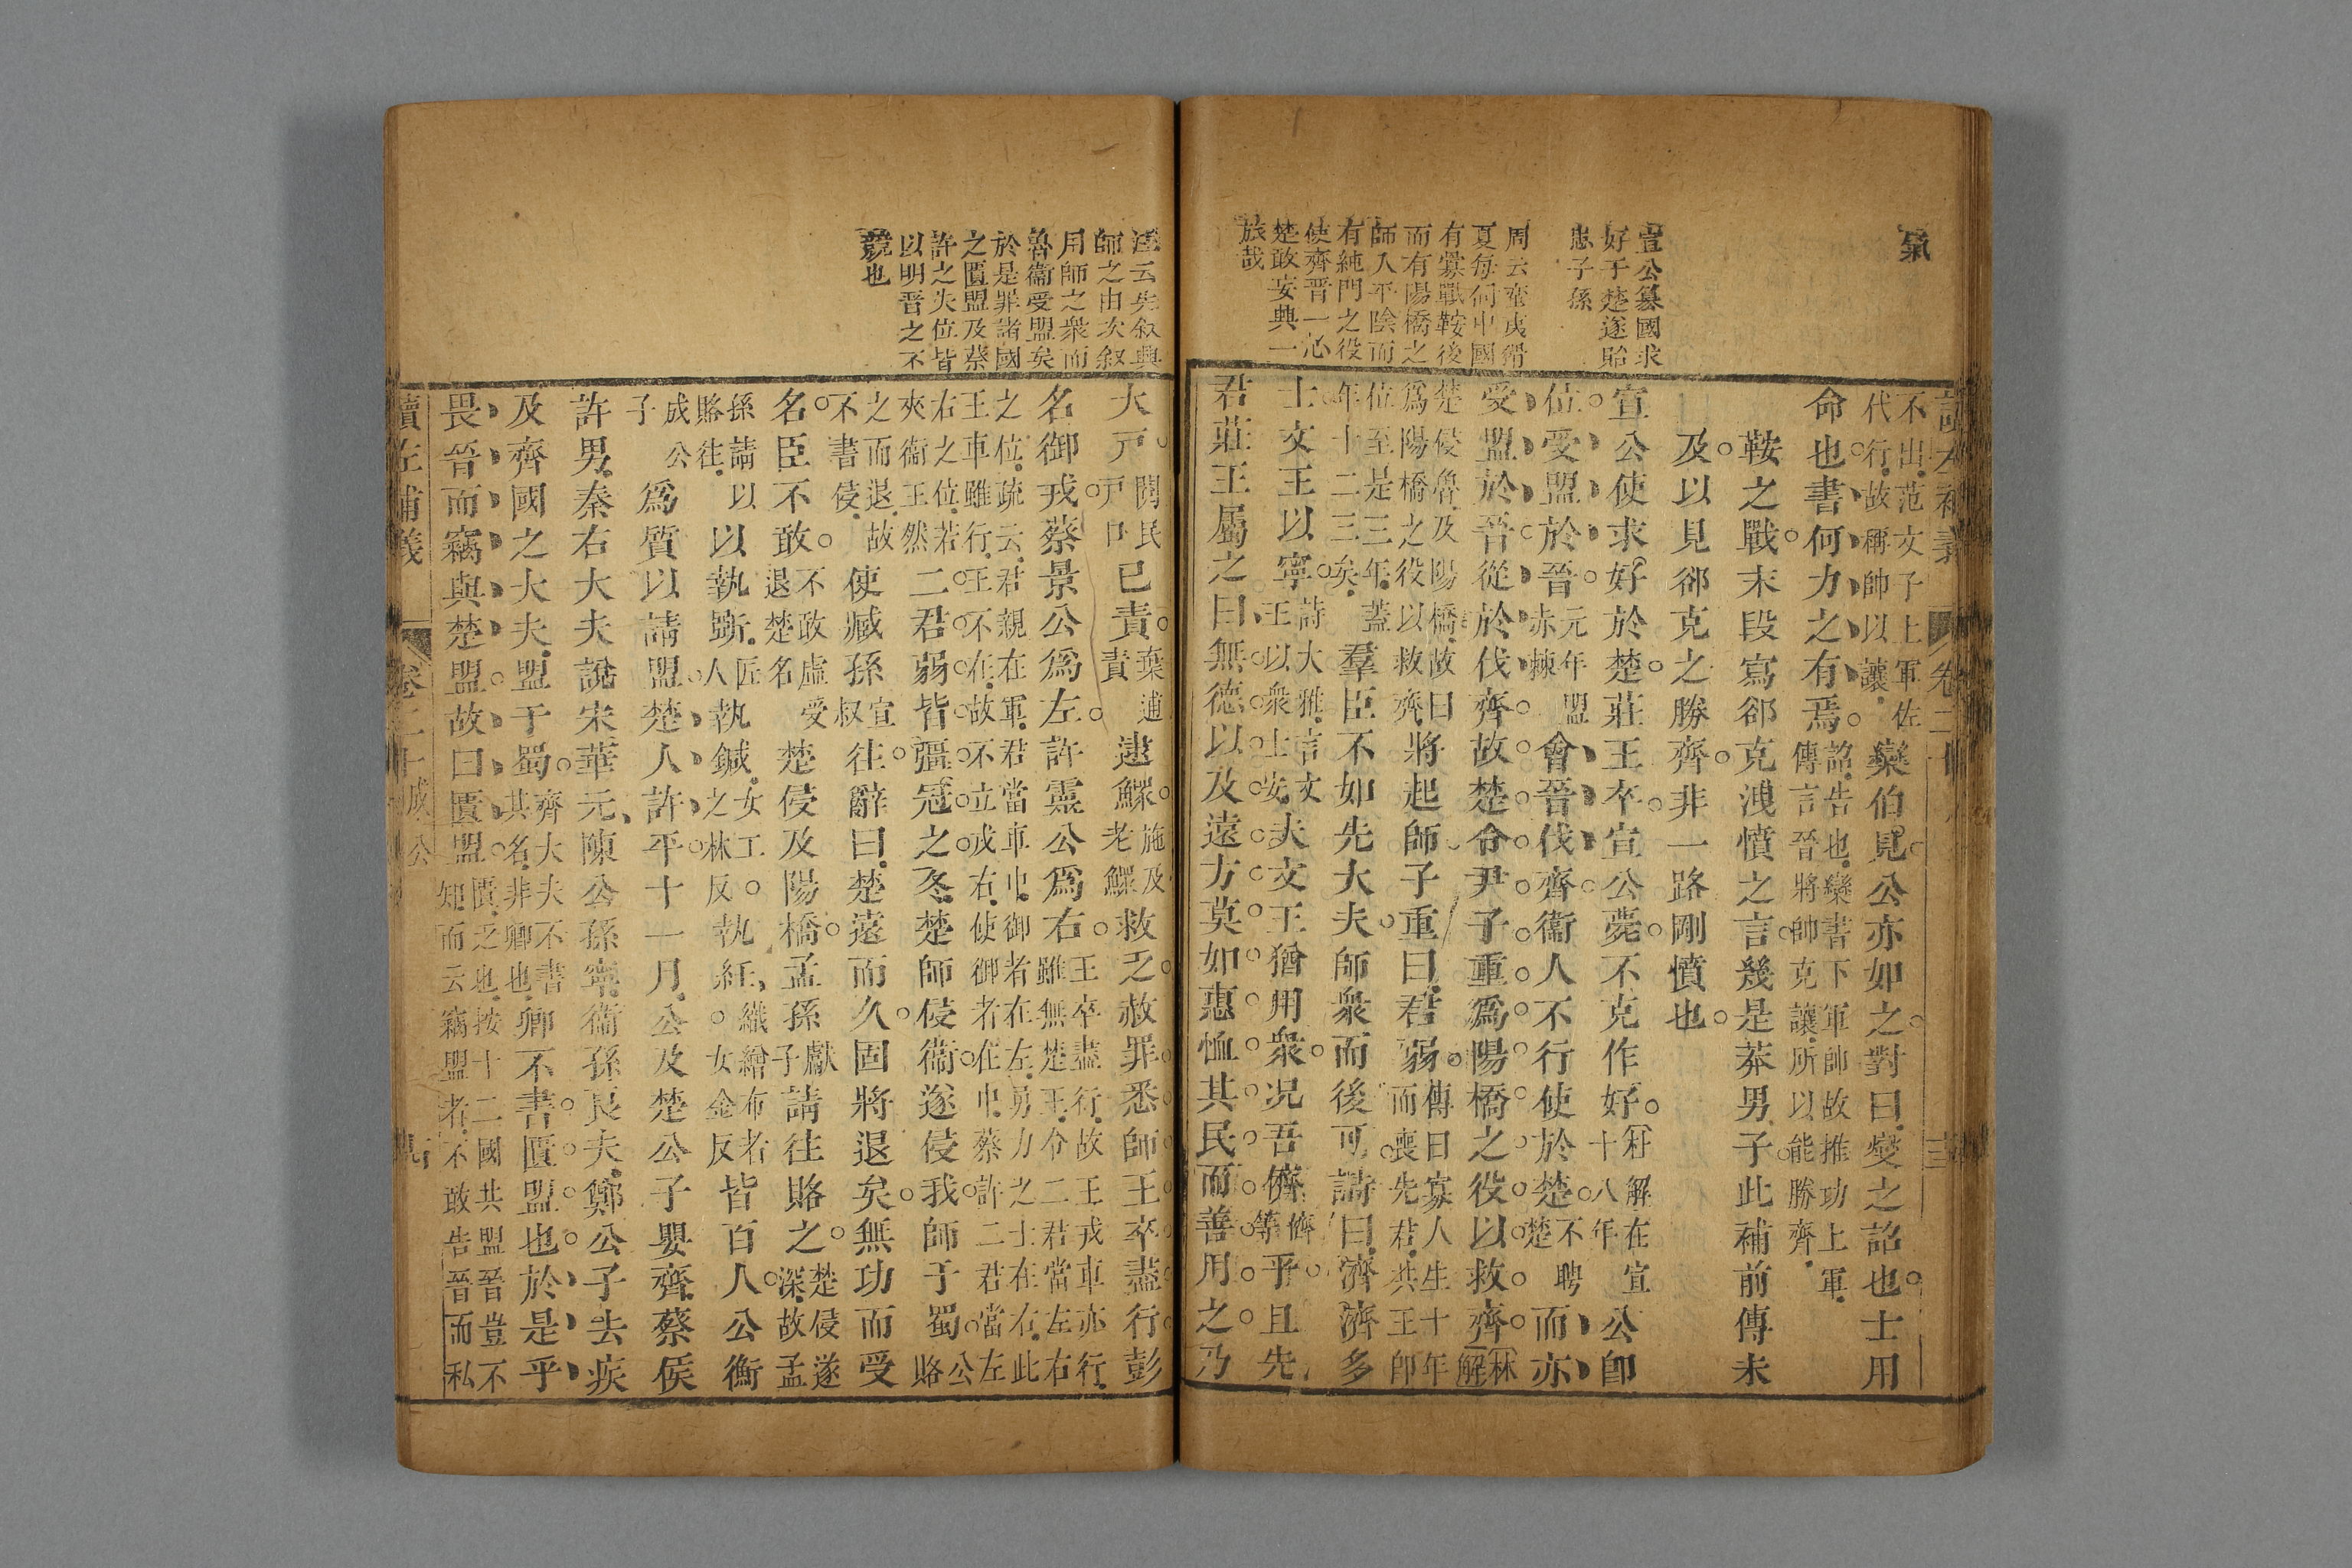 氣
宣公篡國求
好于楚遂貽
患子孫
周云蠻夷猾
夏每伺中國
有釁戰鞍後
而有陽橋之
師入平陰而
有純門之役
使齊晉一心
楚敢妄興一
旅哉
讀左補義 卷二十
不出范文子上軍佐
代行故稱帥以讓
欒伯見公亦如之對曰燮之詔也士用
命也書何力之有焉
詔告也欒書下軍帥故推功上軍
傳言晉將帥克讓所以能勝齊
鞍之戰末段寫郤克洩憤之言幾是莽男子此補前傳未
及以見郤克之勝齊非一路剛憤也
宣公使求好於楚莊王卒宣公薨不克作好
杜解在宣
十八年
公卽
位受盟於晉
元年盟
赤棘
會晉伐齊衞人不行使於楚
不聘
楚
而亦
受盟於晉從於伐齊故楚令尹子重爲陽橋之役以救齊
林
解
楚侵魯及陽橋故曰
爲陽橋之役以救齊
將起師子重曰君弱
傳曰寡人生十年
而喪先君共王卽
位至是三年蓋
年十二三矣
羣臣不如先大夫師衆而後可詩曰濟濟多
士文王以寧
詩大雅言文
王以衆士安
夫文王猶用衆况吾儕
儕
等
乎且先
君莊王屬之曰無德以及遠方莫如惠恤其民而善用之乃
汪云先叙興
師之由次叙
用師之衆而
魯衞受盟矣
於是罪諸國
之匱盟及蔡
許之失位皆
以明晉之不
競也
大戸
閱民
戸口
已責
棄逋
責
逮鰥
施及
老鰥
救乏赦罪悉師王卒盡行彭
名御戎蔡景公爲左許靈公爲右
王卒盡行故王戎車亦行
雖無楚王令二君當左右
之位疏云君親在軍君當車中御者在左勇力之士在右此
王車雖行王不在故不立戎右使御者在中蔡許二君當左
右之位若
夾衞王然
二君弱皆彊冠之冬楚師侵衞遂侵我師于蜀
公
賂
之而退故
不書侵
使臧孫
宣
叔
往辭曰楚遠而久固將退矣無功而受
名臣不敢
不敢虛受
退楚名
楚侵及陽橋孟孫
獻
子
請往賂之
楚侵遂
深故孟
孫請以
賂往
以執斲
匠
人
執鍼
女工
之林反
執紝
織繒布者
女金反
皆百人公衡
成公
子
爲質以請盟楚人許平十一月公及楚公子嬰齊蔡侯
許男秦右大夫說宋華元陳公孫寧衞孫良夫鄭公子去疾
及齊國之大夫盟于蜀
齊大夫不書
其名非卿也
卿不書匱盟也於是乎
畏晉而竊與楚盟故曰匱盟
匱乏也按十二國共盟晉豈不
知而云竊盟者不敢告晉而私
讀左補義 卷二十 成公